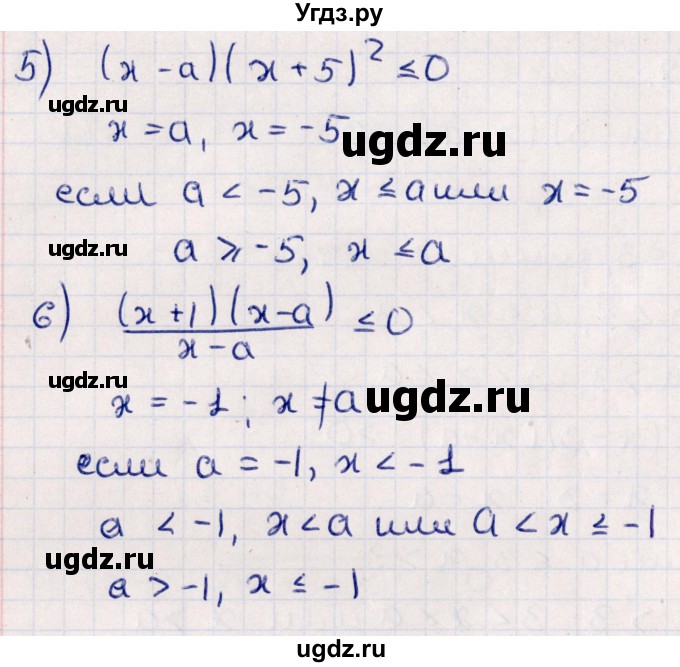 Угдз.ру
5) (x - a)(x + 5)² ≤ 0
ugdz.ru
x = a, x = -5
ugdz.ru
если a < -5, x ≤ a или x = -5
ugdz.ru
a ⩾ -5, x ≤ a
6) (x+1)(x-a)/(x-a) ≤ 0
ugdz.ru
x = -1; x ≠ a
ugdz.ru
если a = -1, x < -1
a < -1, x < a или a < x ≤ -1
ugdz.ru
a > -1, x ≤ -1
ugdz.ru